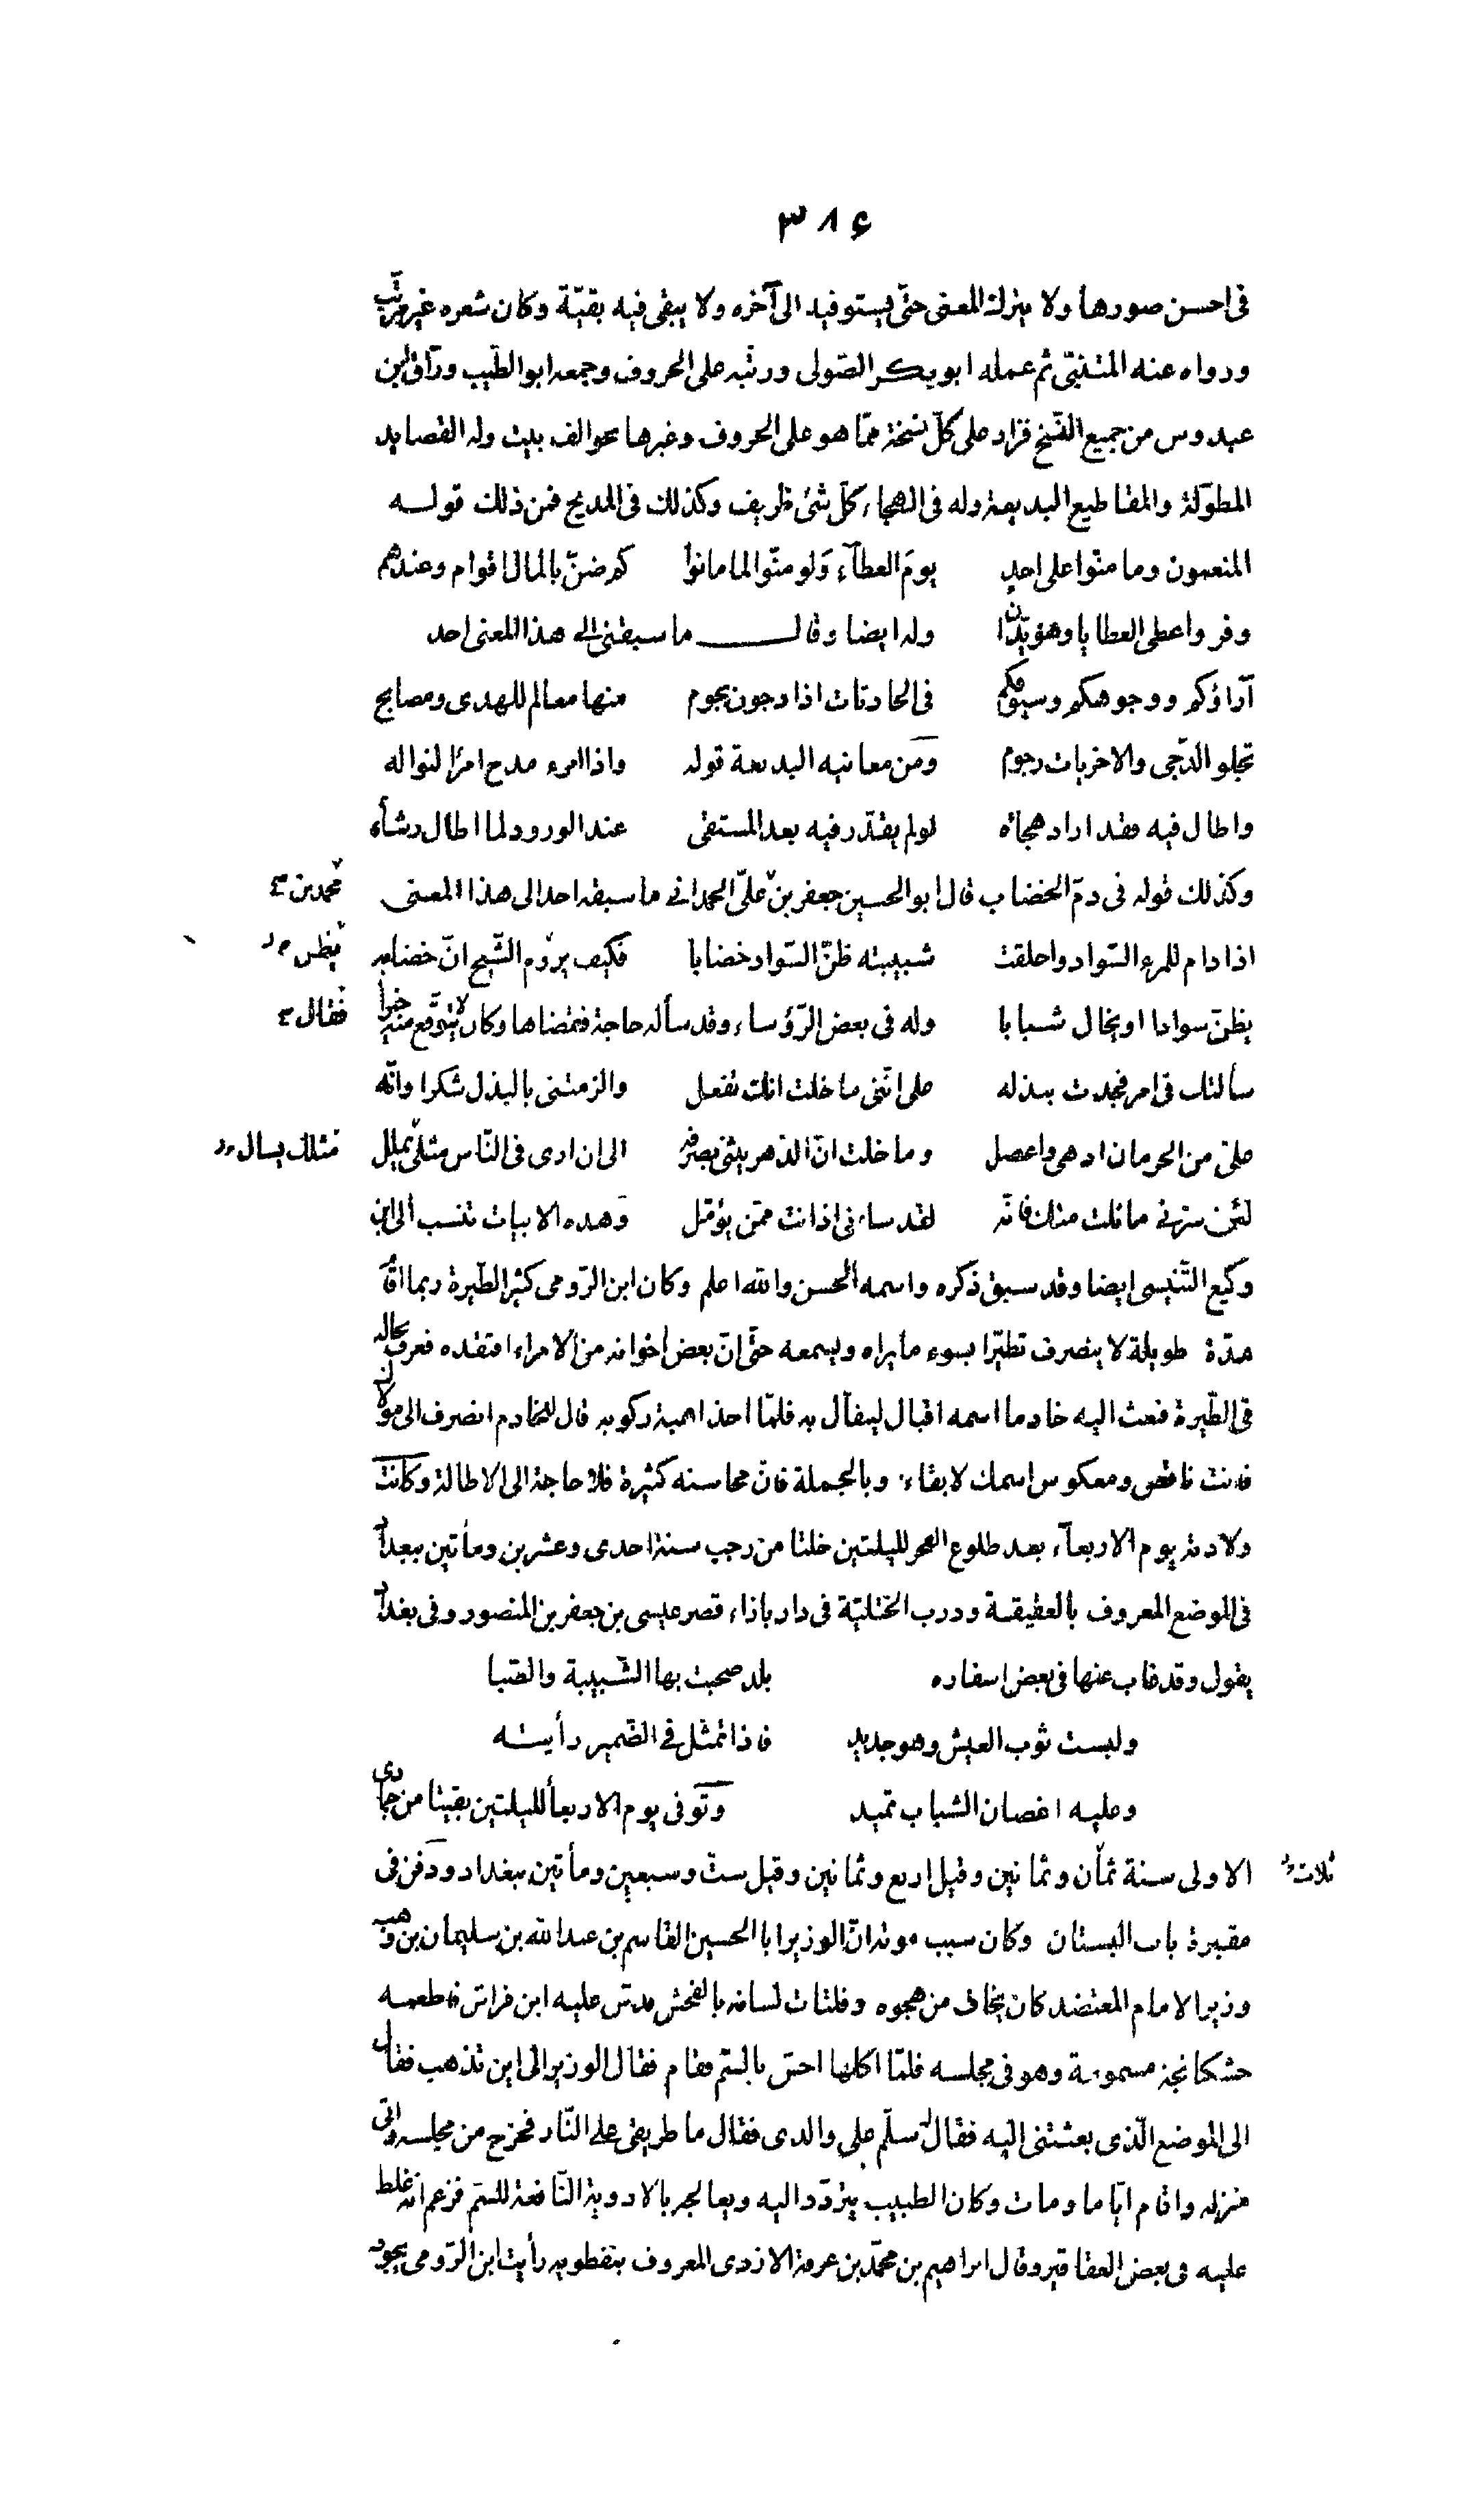 ٣٨۶
فى احسن صورها ولا يترك المعنى حتّى يستوفيه الى آخره ولا يبقى فيه بقيّة وكان شعره غير مرتّب
ورواه عنه المتنبّى ثم عمله ابو بكر الصّولى ورتّبه على الحروف وجمعه ابو الطّيب ورّاق ابن
عبدوس من جميع النّسخ فزاد على كلّ نسخة ممّا هو على الحروف وغيرها نحو الف بيت وله القصايد
المطوّلة والمقاطيع البديعة وله فى الهجاء كلّ شئ ظريف وكذلك فى المديح فمن ذلك قولـــه
المنعمون وما منّوا على احدٍ يومَ العطآء وَلو منّوا لما مانوا كم ضنّ بالمال اقوام وعندهم
وفر واعطى العطايا وهو يدّان وله ايضا وقال ما سبقنى الى هذا المعنى احد
آراؤكم ووجوهكم وسيوفكم فى الحادثات اذا دجون نجوم منها معالم للهدى ومصابح
تجلو الدّجى والاخريات رجوم ومن معانيه البديعة قوله واذا امرء مدح امرًا لنواله
واطال فيه فقد اراد هجائه لو لم يقدّر فيه بعد المستقى عند الورود لما اطال رشاه
وكذلك قوله فى دمّ الخضاب قال ابو الحسين جعفر بن علىّ الحمدانى ما سبقه احد الى هذا المعنى محمد بن
اذا دام للمرء السّواد واخلقت شبيبته ظنّ السّواد خضابا فكيف يروم الشّيخ انّ خضابه يظن
يظنّ سوادا او يخال شبابا وله فى بعض الرّؤساء وقد سأله حاجة فقضاها وكان لا يتوقّع منه خيرا فقال
سألتك فى امر فجدت ببذله على انّنى ما خلت انك تفعل والزمتنى بالبذل شكرا وانّه
علىّ من الحرمان ادهى واعضل وما خلت انّ الدّهر يثنى بصرفه الى ان ارى فى النّاس مثلى يملل مثلك يسال
لئن سرنى ما نلت منك فانّه لقد ساءنى اذ انت ممّن يؤمّل وهذه الابيات تنسب الى ابن
وكيع التّنيسى ايضا وقد سبق ذكره واسمه الحسن والله اعلم وكان ابن الرّومى كثير الطّيرة ربما اقام
مدّة طويلة لا يتصرف تطيّرا بسوء ما يراه ويسمعه حتّى انّ بعض اخوانه من الامراء افتقده فعرف بحاله
فى الطّيرة فبعث اليه خادما اسمه اقبال ليتفأل به فلمّا اخذ اهبة ركوبه قال للخادم انصرف الى مولاك
فانت ناقص ومعكوس اسمك لا بقاء وبالجملة فانّ محاسنه كثيرة فلا حاجة الى الاطالة وكانت
ولادته يوم الاربعآء بعد طلوع الفجر لليلتين خلتا من رجب سنة احدى وعشرين ومأتين ببغداد
فى الموضع المعروف بالعقيقة ودرب الختليّة فى دار بازاء قصر عيسى بن جعفر بن المنصور وفى بغداد
يقول وقد غاب عنها فى بعض اسفاره بلد صحبت بها الشّبيبة والصّبا
ولبست ثوب العيش وهو جديد فاذا تمثّل فى الضّمير رأيته
وعليه اغصان الشباب تميد وتوفى يوم الاربعأ لليلتين بقيتا من جمادى
الاولى سنة ثمان وثمانين وقيل اربع وثمانين وقيل ستّ وسبعين ومأتين ببغداد ودفن فى ثلاث
مقبرة باب البستان وكان سبب موته انّ الوزير ابا الحسين القاسم بن عبد الله بن سليمان بن وهب
وزير الامام المعتضد كان يخاف من هجوه وفلتات لسانه بالفحش فدسّ عليه ابن فراس فاطعمه
خشكنانجة مسمومة وهو فى مجلسه فلمّا اكلها احسّ بالسّم فقام فقال الوزير الى اين تذهب فقال
الى الموضع الّذى بعثتنى اليه فقال له سلّم على والدى فقال ما طريقى على النّار فخرج من مجلسه واتى
منزله واقام ايّاما ومات وكان الطبيب يتردّد اليه ويعالجه بالادوية النّافعة للسّم فزعم انّه غلط
عليه فى بعض العقاقير وقال ابراهيم بن محمّد بن عرفة الازدى المعروف بنفطويه رأيت ابن الرّومى يجود